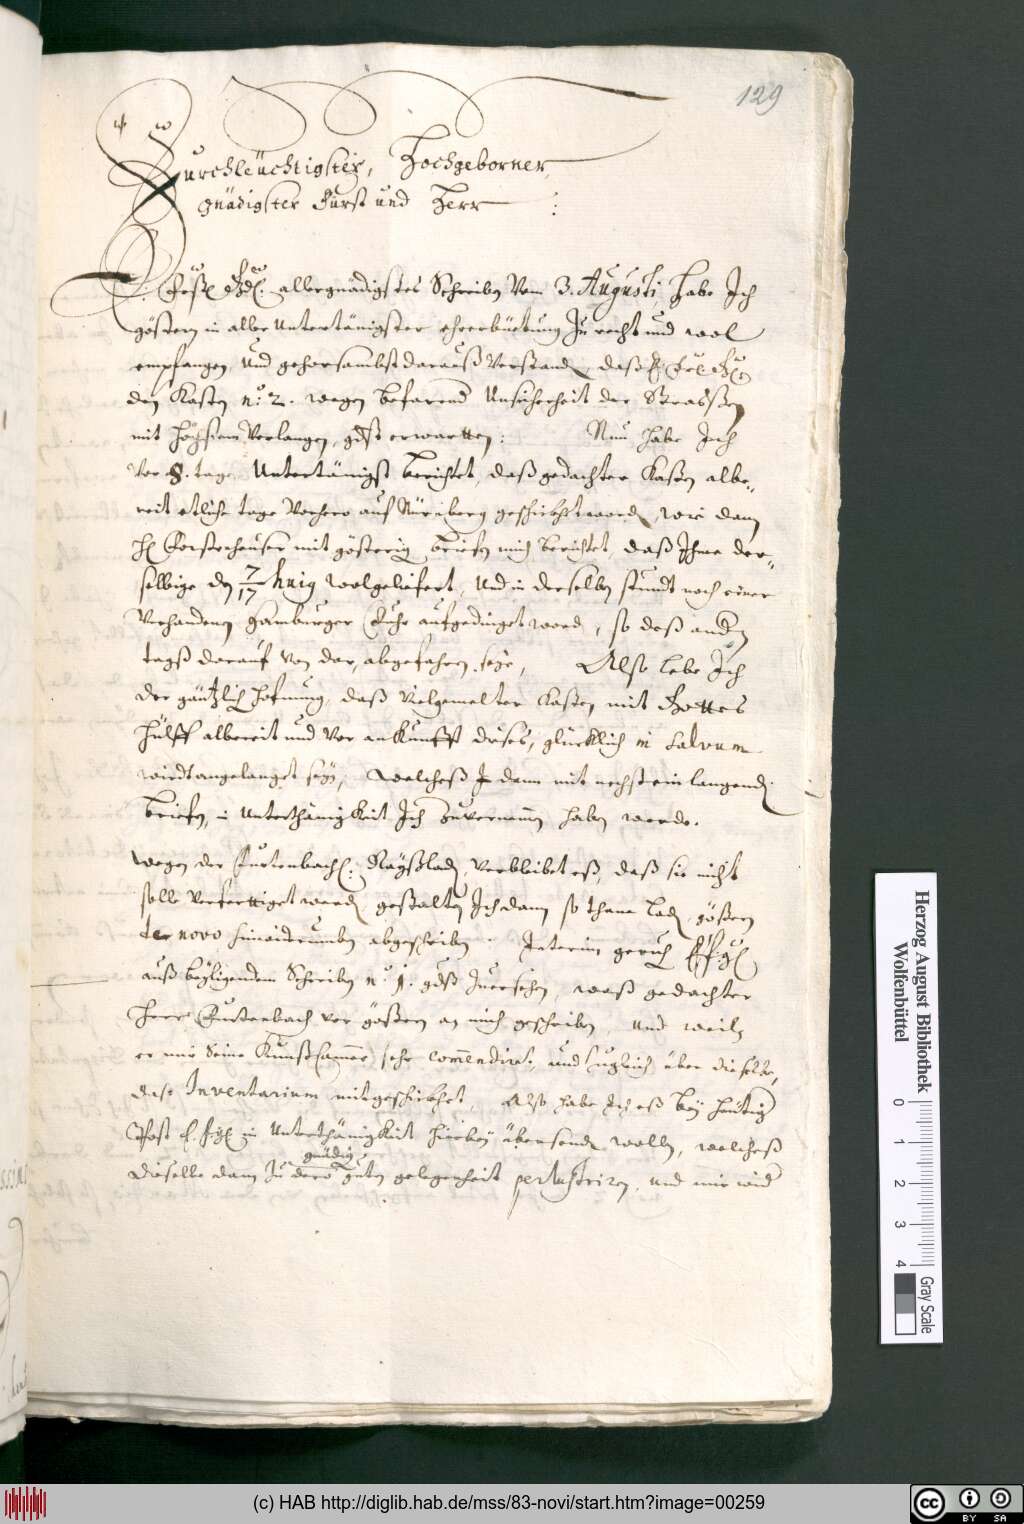 129
Durchleüchtigster, Hochgeborner
gnädigster Fürst und Herr :
allergnädigstes Schreiben Vom 3. Augusti habe Ich
gösteren in aller Untertänigster ehrerbüetung Zu recht und wol
empfangen, Und gehorsambst darauß Verstanden, daß
den Kasten n.o 2. wegen befarend Unsicherheit der Strassen
mit höchstem Verlangen, gdst erwartten: Nun habe Ich
Vor 8. tage Untertänigst berichtet, daß gedachter Kasten albe-
reit etliche tage Vorhero auf Nürnberg geschickht worden, wie dann
H. Forstenheuser mit gösterig briefen mich berichtet, daß Ihme der-
selbige den 7/17 huig wolgeliefert, Und in derselben stundt noch einer
Verhandenen Hamburger Fuhr aufgedinget worden, so daß andern
tagß darauf Von dar, abgefahren seye, Also lebe Ich
der gäntzlich hofnung, daß Vielgemelter Kasten mit Gottes
hülff albereit und Vor ankunfft dises, glücklich in salvum
wirdt angelanget sein, welcheß Ich dann mit nechst ein langenden
briefen, in Unterthänigkeit Ich Zuvernemen haben werde.
Wegen der Furtenbach: Raÿßladen, Verbleibet eß, daß sie nicht
solle Verferttiget werden, gestalten Ich dann so thane Laden, gösteren
de novo hinwiderumben abgeschriben. Interim geruhen
auß beÿligendem Schreiben n.o 1. gdst Zuersehen, waß gedachter
Herr Furtenbach vor gösteren an mich geschriben, und weiln
er mir Seine Kunst Camer sehr comendirt, und Zugleich über dieselbe,
dass Inventarium mitgeschickhet, Also habe Ich eß beÿ heütig
Post in Unterthänigkeit hierbeÿ übersenden wollen, welcheß
gnädig
dieselbe dann Zu dero guten gelegenheit perlustriren, und mir wider
Herzog August Bibliothek
Wolfenbüttel
0 1 2 3 4
Gray Scale
(c) HAB http://diglib.hab.de/mss/83-novi/start.htm?image=00259
cc BY SA